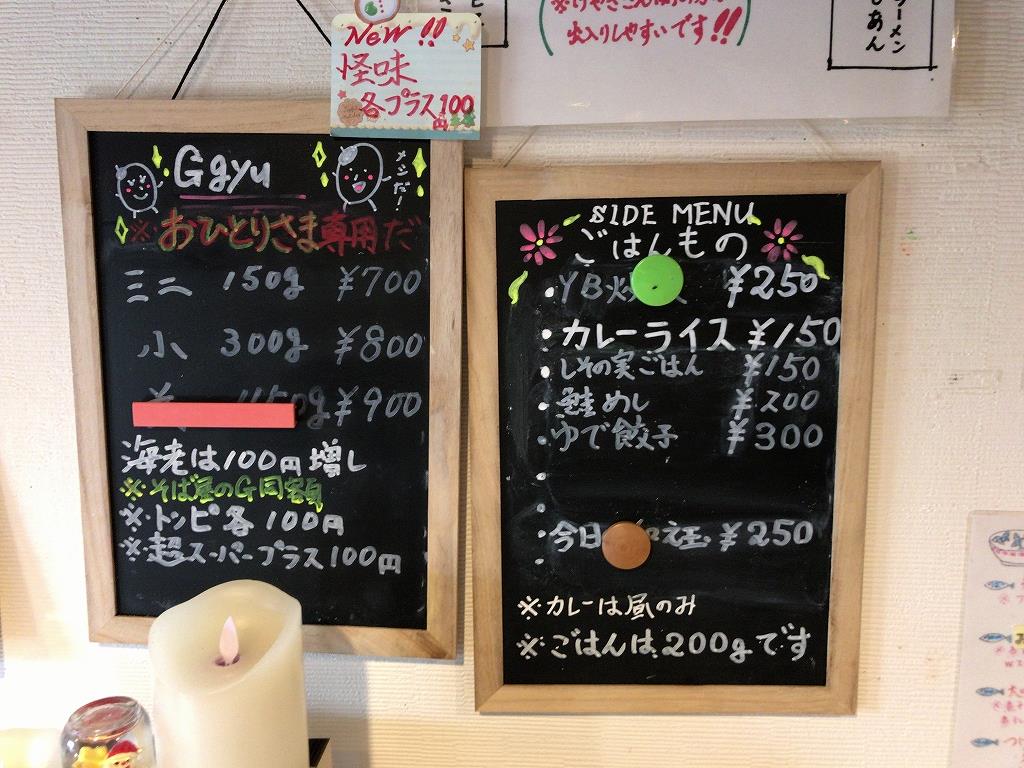 New!!
怪味
各プラス100円
出入りしやすいです!!
ラーメン
しあん
Ggyu
メシだ!
※おひとりさま専用だ
ミニ 150g ¥700
小 300g ¥800
¥900
海老は100円増し
※そば屋のG同額
※トッピ各100円
※超スーパープラス100円
SIDE MENU
ごはんもの
・YB ¥250
・カレーライス ¥150
・しその実ごはん ¥150
・鮭めし ¥200
・ゆで餃子 ¥300
・今日 ¥250
※カレーは昼のみ
※ごはんは200gです